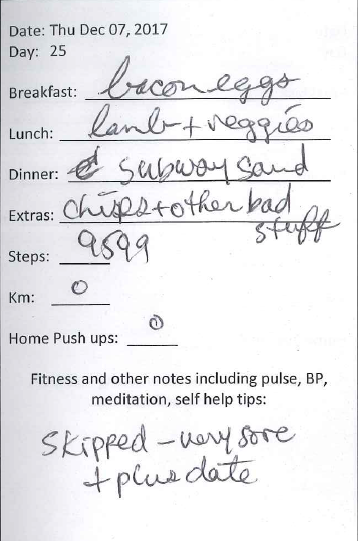 Date: Thu Dec 07, 2017
Day: 25
Breakfast: bacon eggs
Lunch: lamb + veggies
Dinner: subway sand
Extras: chips + other bad
stuff
Steps: 9599
Km: 0
Home Push ups: 0
Fitness and other notes including pulse, BP,
meditation, self help tips:
skipped - very sore
+ plus date